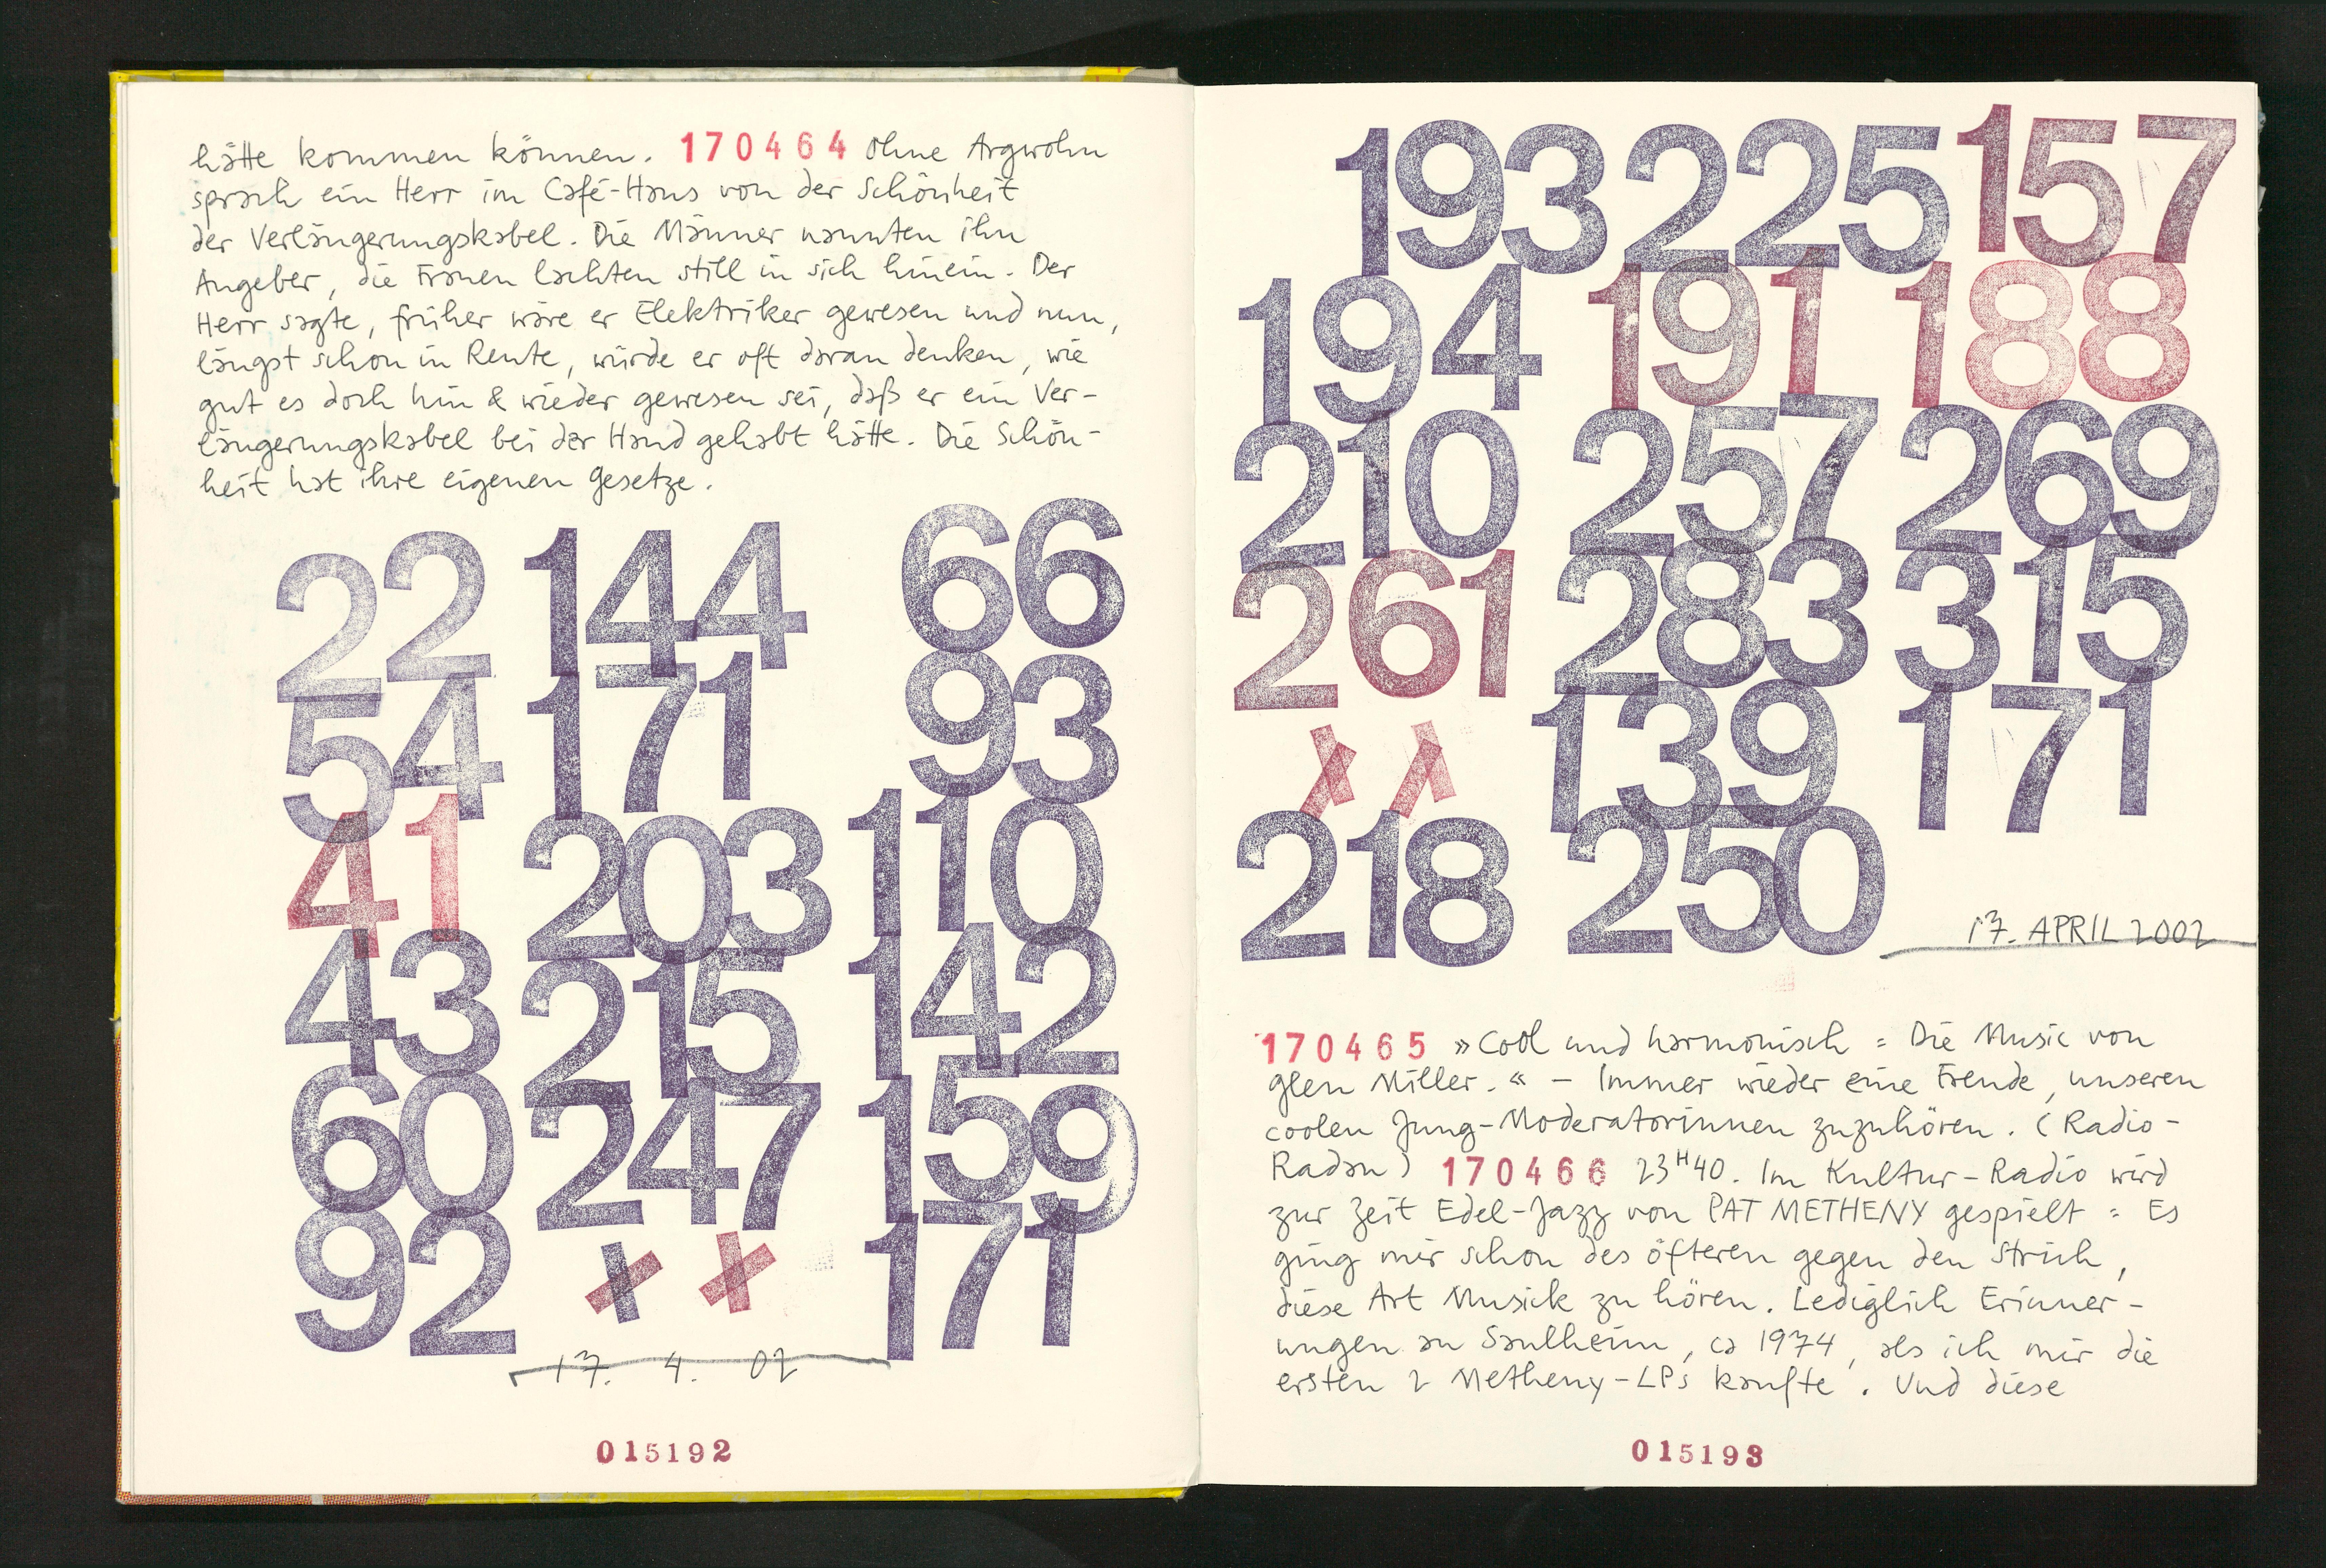 hätte kommen können. 170464 Ohne Argwohn
sprach ein Herr im Café-Haus von der Schönheit
der Verlängerungskabel. Die Männer nannten ihn
Angeber, die Frauen lachten still in sich hinein. Der
Herr sagte, früher wäre er Elektriker gewesen und nun,
längst schon in Rente, würde er oft daran denken, wie
gut es doch hin & wieder gewesen sei, daß er ein Ver-
längerungskabel bei der Hand gehabt hätte. Die Schön-
heit hat ihre eigenen Gesetze.
22 144 66
54 171 93
41 203 110
43 215 142
60 247 159
92 171
17. 4. 02
015192
193 225 157
194 191 188
210 257 269
261 283 315
139 171
218 250
17. APRIL 2002
170465 »Cool und harmonisch = Die Music von
Glen Miller.« – Immer wieder eine Freude, unseren
coolen Jung-Moderatorinnen zuzuhören. (Radio-
Radau) 170466 23H40. Im Kultur-Radio wird
zur Zeit Edel-Jazz von PAT METHENY gespielt = Es
ging mir schon des öfteren gegen den Strich,
diese Art Musick zu hören. Lediglich Erinner-
ungen an Saulheim, ca 1974, als ich mir die
ersten 2 Metheny-LPs kaufte. Und diese
015193